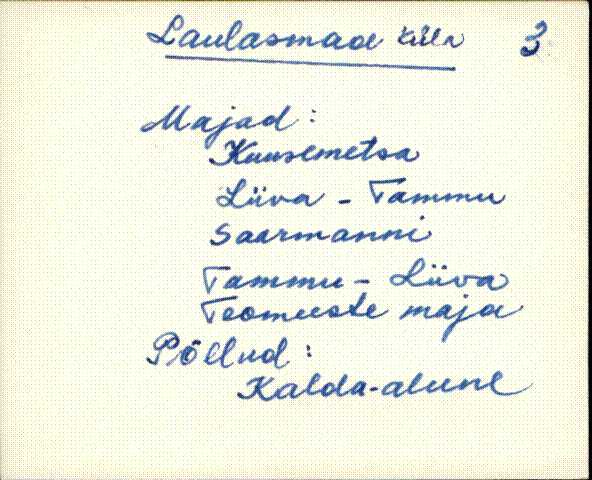 Laulasmaa küla 3
Majad:
Kuusemetsa
Liiva - Tammu
Saarmanni
Tammu - Liiva
Toomuste maja
Põllud:
Kalda-alune